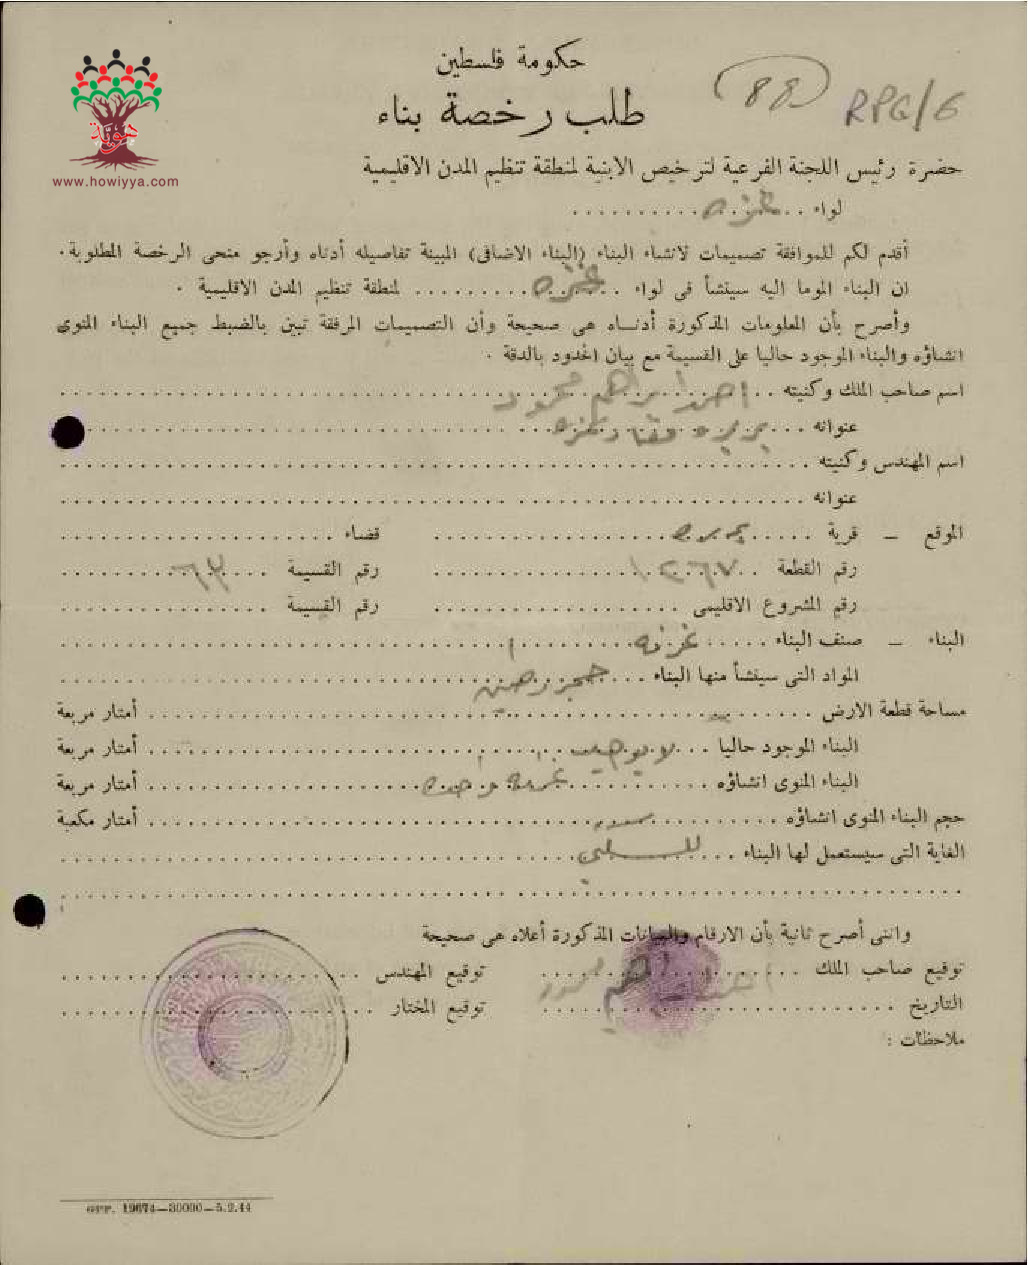 هويّة
www.howiyya.com
حكومة فلسطين
طلب رخصة بناء
88
RPG/6
حضرة رئيس اللجنة الفرعية لترخيص الابنية لمنطقة تنظيم المدن الاقليمية
لواء غزه
أقدم لكم للموافقة تصميمات لانشاء البناء (البناء الاضافى) المبينة تفاصيله أدناه وأرجو منحى الرخصة المطلوبة.
ان البناء الموما اليه سينشأ فى لواء غزه لمنطقة تنظيم المدن الاقليمية .
وأصرح بأن المعلومات المذكورة أدناه هى صحيحة وأن التصميمات المرفقة تبين بالضبط جميع البناء المنوى
انشاؤه والبناء الموجود حاليا على القسيمة مع بيان الحدود بالدقة .
اسم صاحب الملك وكنيته احمد ابراهم محمود
عنوانه بربره قضاء غزه
اسم المهندس وكنيته
عنوانه
الموقع – قرية بربره قضاء
رقم القطعة رقم القسيمة ٦٣
رقم المشروع الاقليمى رقم القسيمة
البناء – صنف البناء غرفه
المواد التى سينشأ منها البناء حجر وطين
مساحة قطعة الارض أمتار مربعة
البناء الموجود حاليا لا يوجد أمتار مربعة
البناء المنوى انشاؤه غرفه واحده أمتار مربعة
حجم البناء المنوى انشاؤه أمتار مكعبة
الغاية التى سيستعمل لها البناء للسكن
واننى أصرح ثانية بأن الارقام والبيانات المذكورة أعلاه هى صحيحة
توقيع صاحب الملك احمد ابراهم محمود توقيع المهندس
التاريخ توقيع المختار
ملاحظات :
GPP. 19674—30000—5.2.44